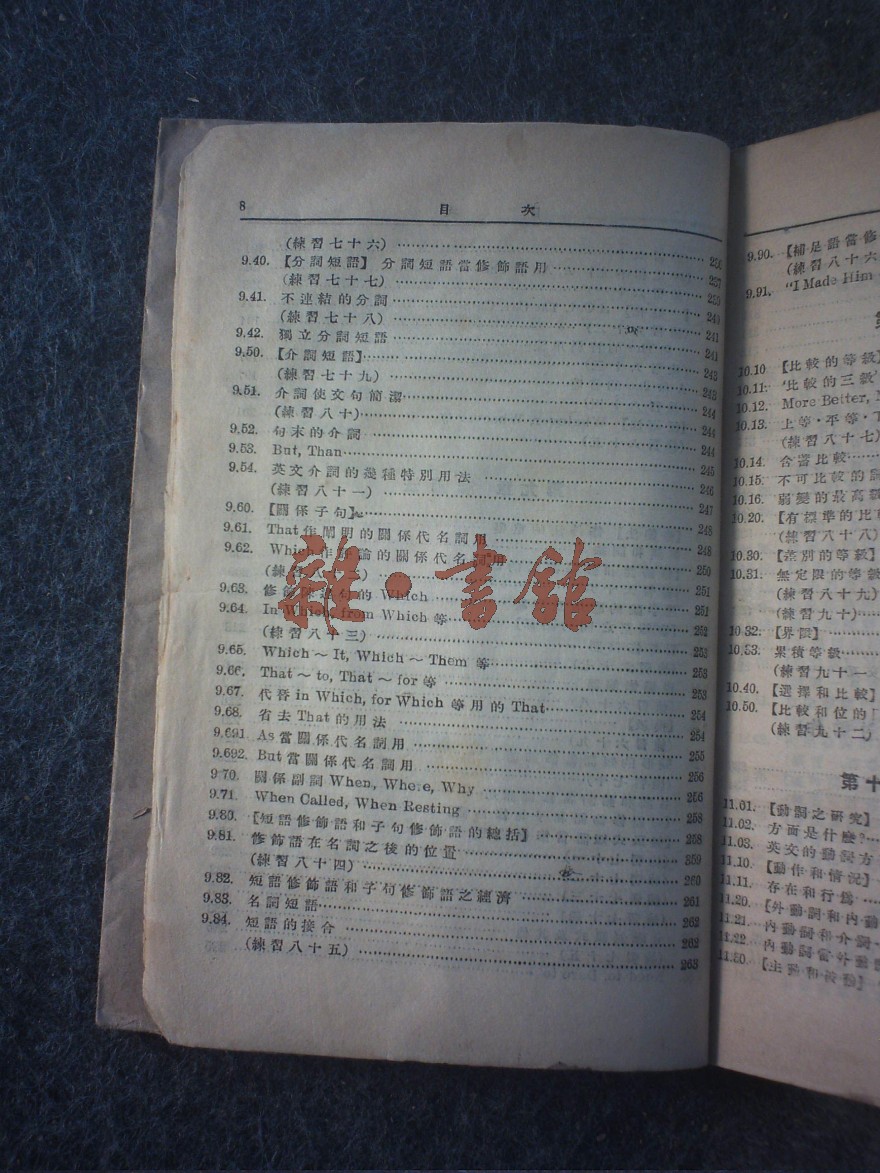 8 目 次
(練習七十六) 236
9.40. 【分詞短語】 分詞短語當修飾語用 237
(練習七十七) 239
9.41. 不連結的分詞 240
(練習七十八) 241
9.42. 獨立分詞短語 241
9.50. 【介詞短語】 243
(練習七十九) 243
9.51. 介詞使文句簡潔 244
(練習八十) 244
9.52. 句末的介詞 244
9.53. But, Than 245
9.54. 英文介詞的幾種特別用法 246
(練習八十一) 247
9.60. 【關係子句】 248
9.61. That作闡明的關係代名詞用 248
9.62. Which作 論的關係代名詞用 250
(練習 ) 251
9.63. 修飾 句的 Which 251
9.64. In Which, from Which 等 252
(練習八十三) 252
9.65. Which～It, Which～Them 等 253
9.66. That～to, That～for 等 253
9.67. 代替 in Which, for Which 等用的 That 254
9.68. 省去 That 的用法 254
9.691. As當關係代名詞用 255
9.692. But當關係代名詞用 256
9.70. 關係副詞 When, Where, Why 256
9.71. When Called, When Resting 258
9.80. 【短語修飾語和子句修飾語的總括】 258
9.81. 修飾語在名詞之後的位置 259
(練習八十四) 260
9.82. 短語修飾語和子句修飾語之經濟 261
9.83. 名詞短語 262
9.84. 短語的接合 262
(練習八十五) 263
雜·書館
9.90. 【補足語當修
(練習八十六
9.91. "I Made Him
第
10.10 【比較的等級】
10.11. '比較的三級'
10.12. More Better,
10.13. 上等·平等·
(練習八十七)
10.14. 含蓄比較
10.15. 不可比較的
10.16. 弱變的最高級
10.20. 【有標準的比
(練習八十八)
10.30. 【差別的等級】
10.31. 無定限的等級
(練習八十九)
(練習九十)
10.32. 【界限】
10.33. 累積等級
(練習九十一
10.40. 【選擇和比較】
10.50. 【比較和位的
(練習九十二)
第十
11.01. 【動詞之研究】
11.02. 方面是什麼?
11.03. 英文的動詞方
11.10. 【動作和情況】
11.11. 存在和行爲
11.20. 【外動詞和內動
11.21. 內動詞和介詞
11.22. 內動詞當外動詞
11.30 【主動和被動】